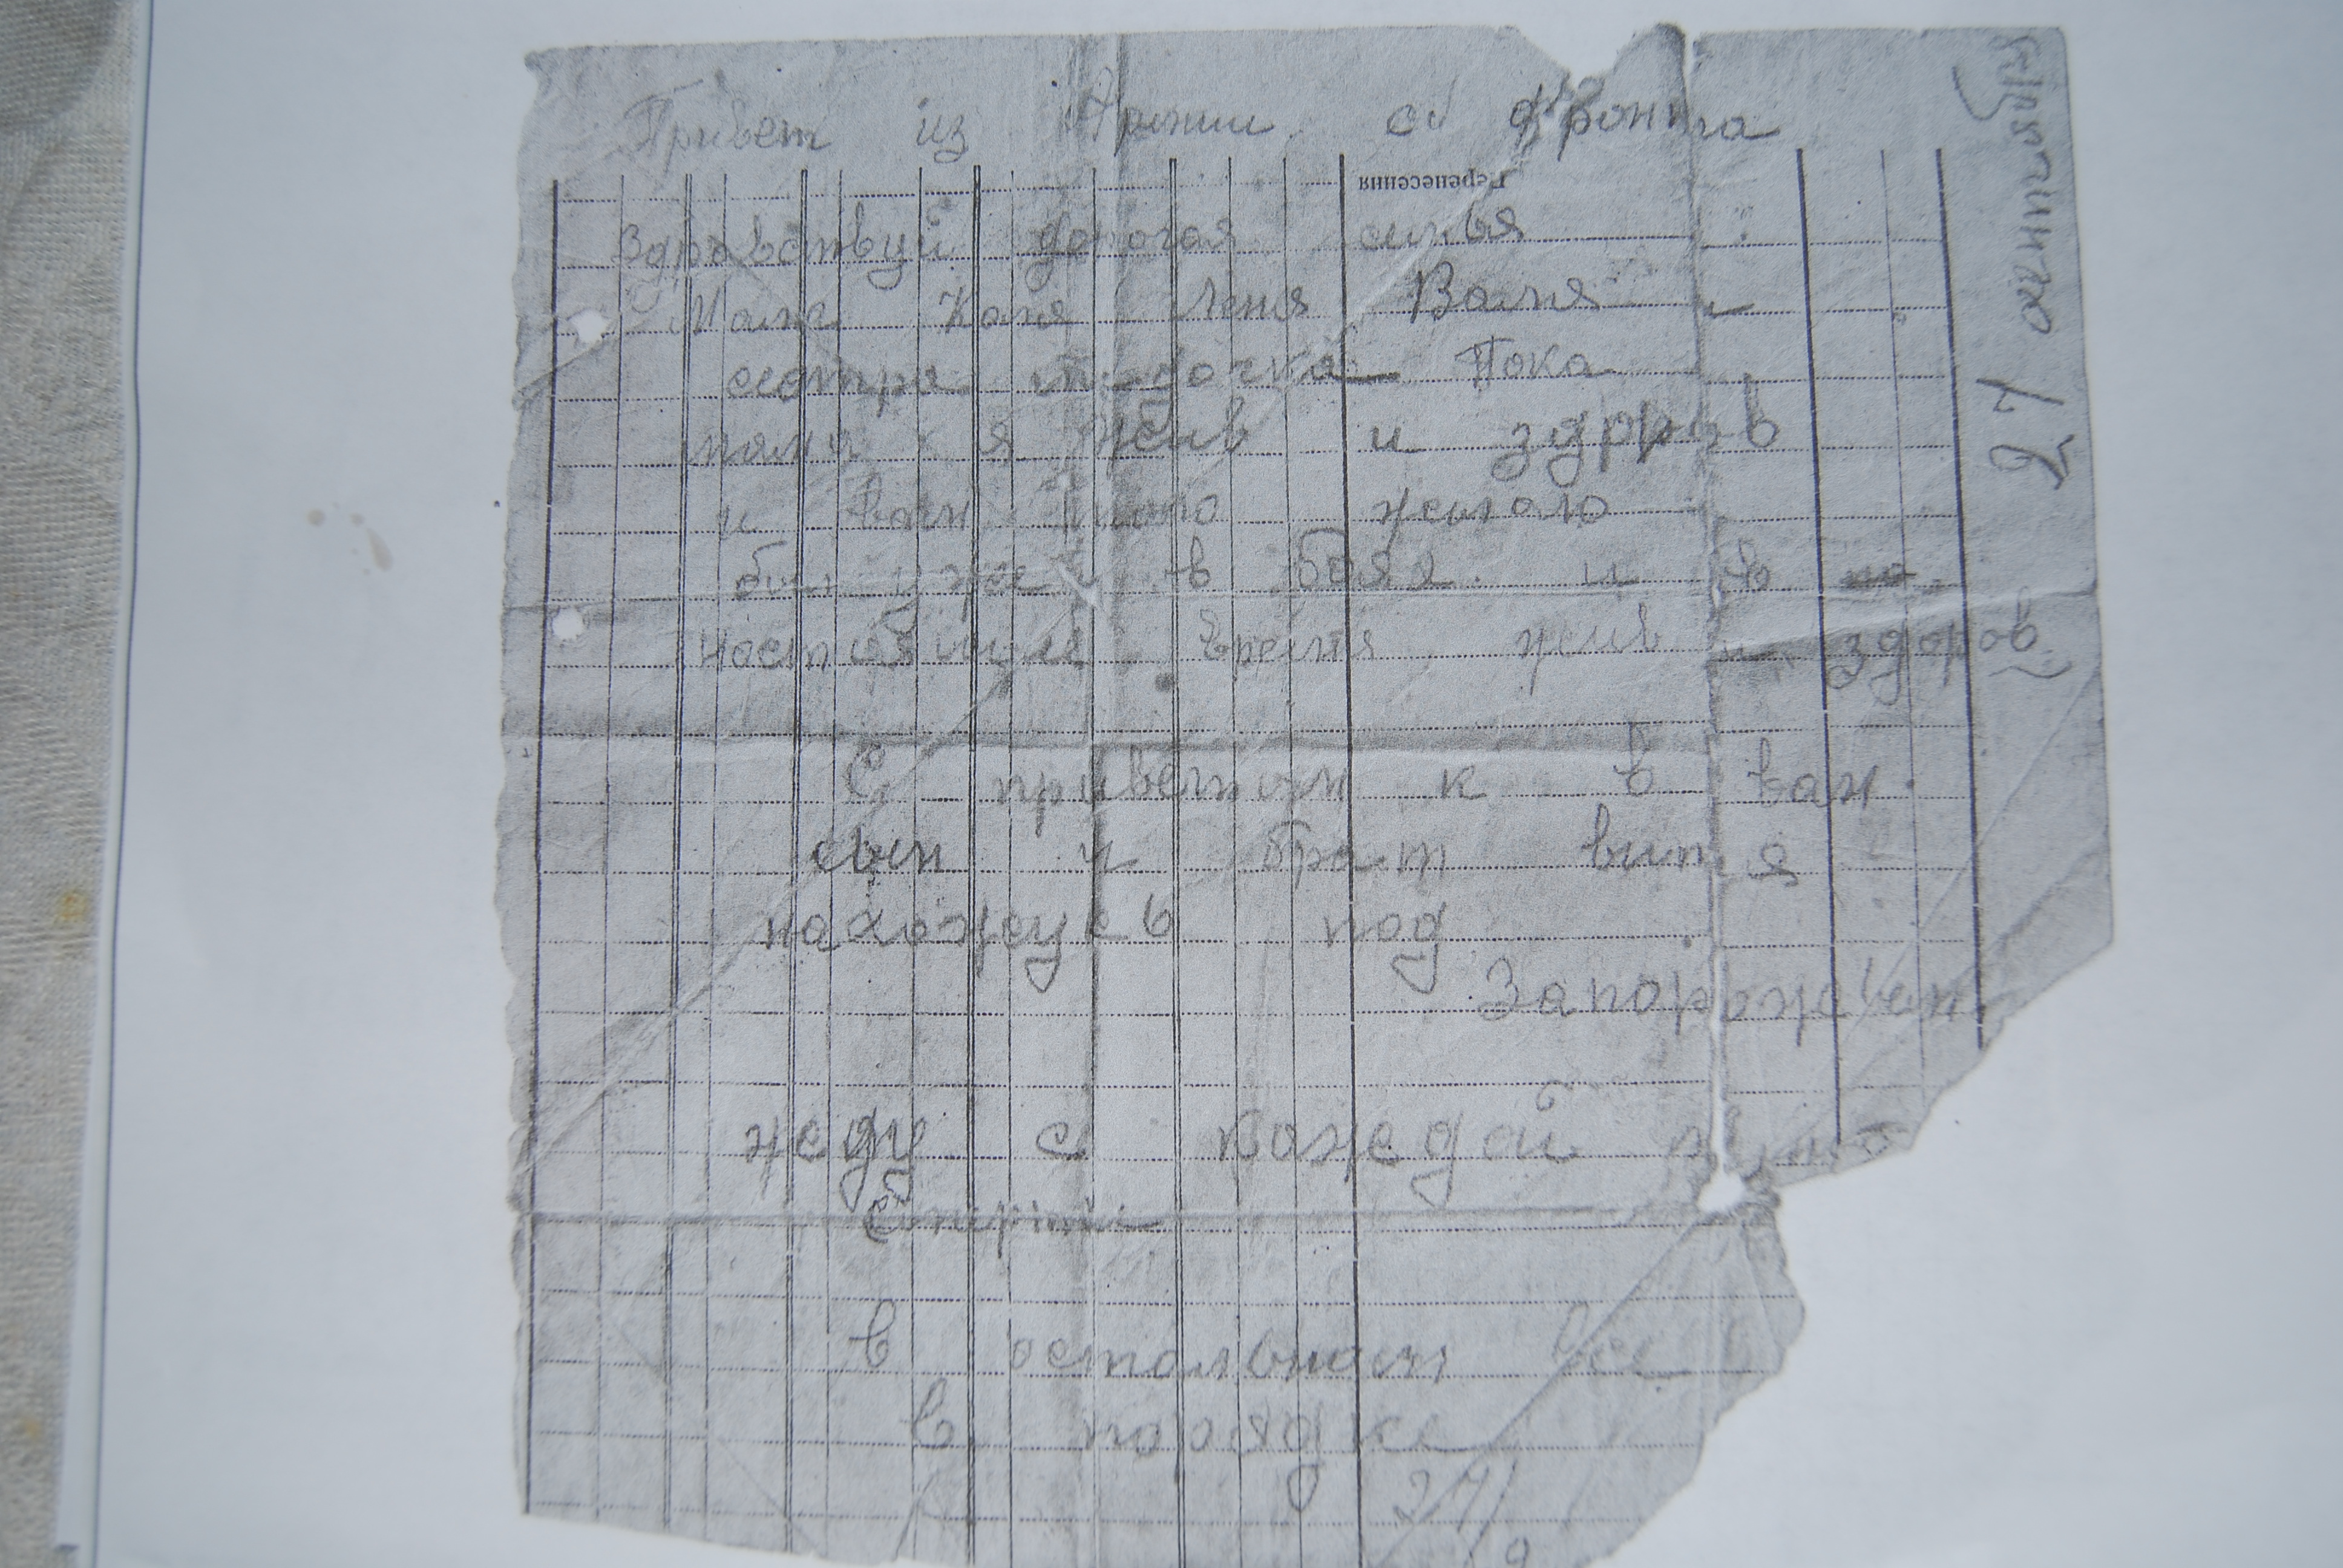 Привет из Армии с фронта
Перенесення
Здравствуй дорогая симья
Мама Катя Леня Валя и
сестра Пока
мама я жив и здоров
и вам того желаю
был уже в боях и в на
настоящие время жив и здоров
С приветом к в вам.
сын и брат витя
нахожусь под
Запорожьем
жду с каждой
в остальном все
в порядке
27/
9